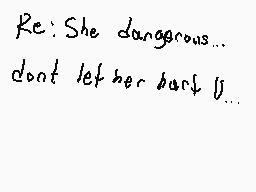 Re: She dangerous...
dont let her hurt U...